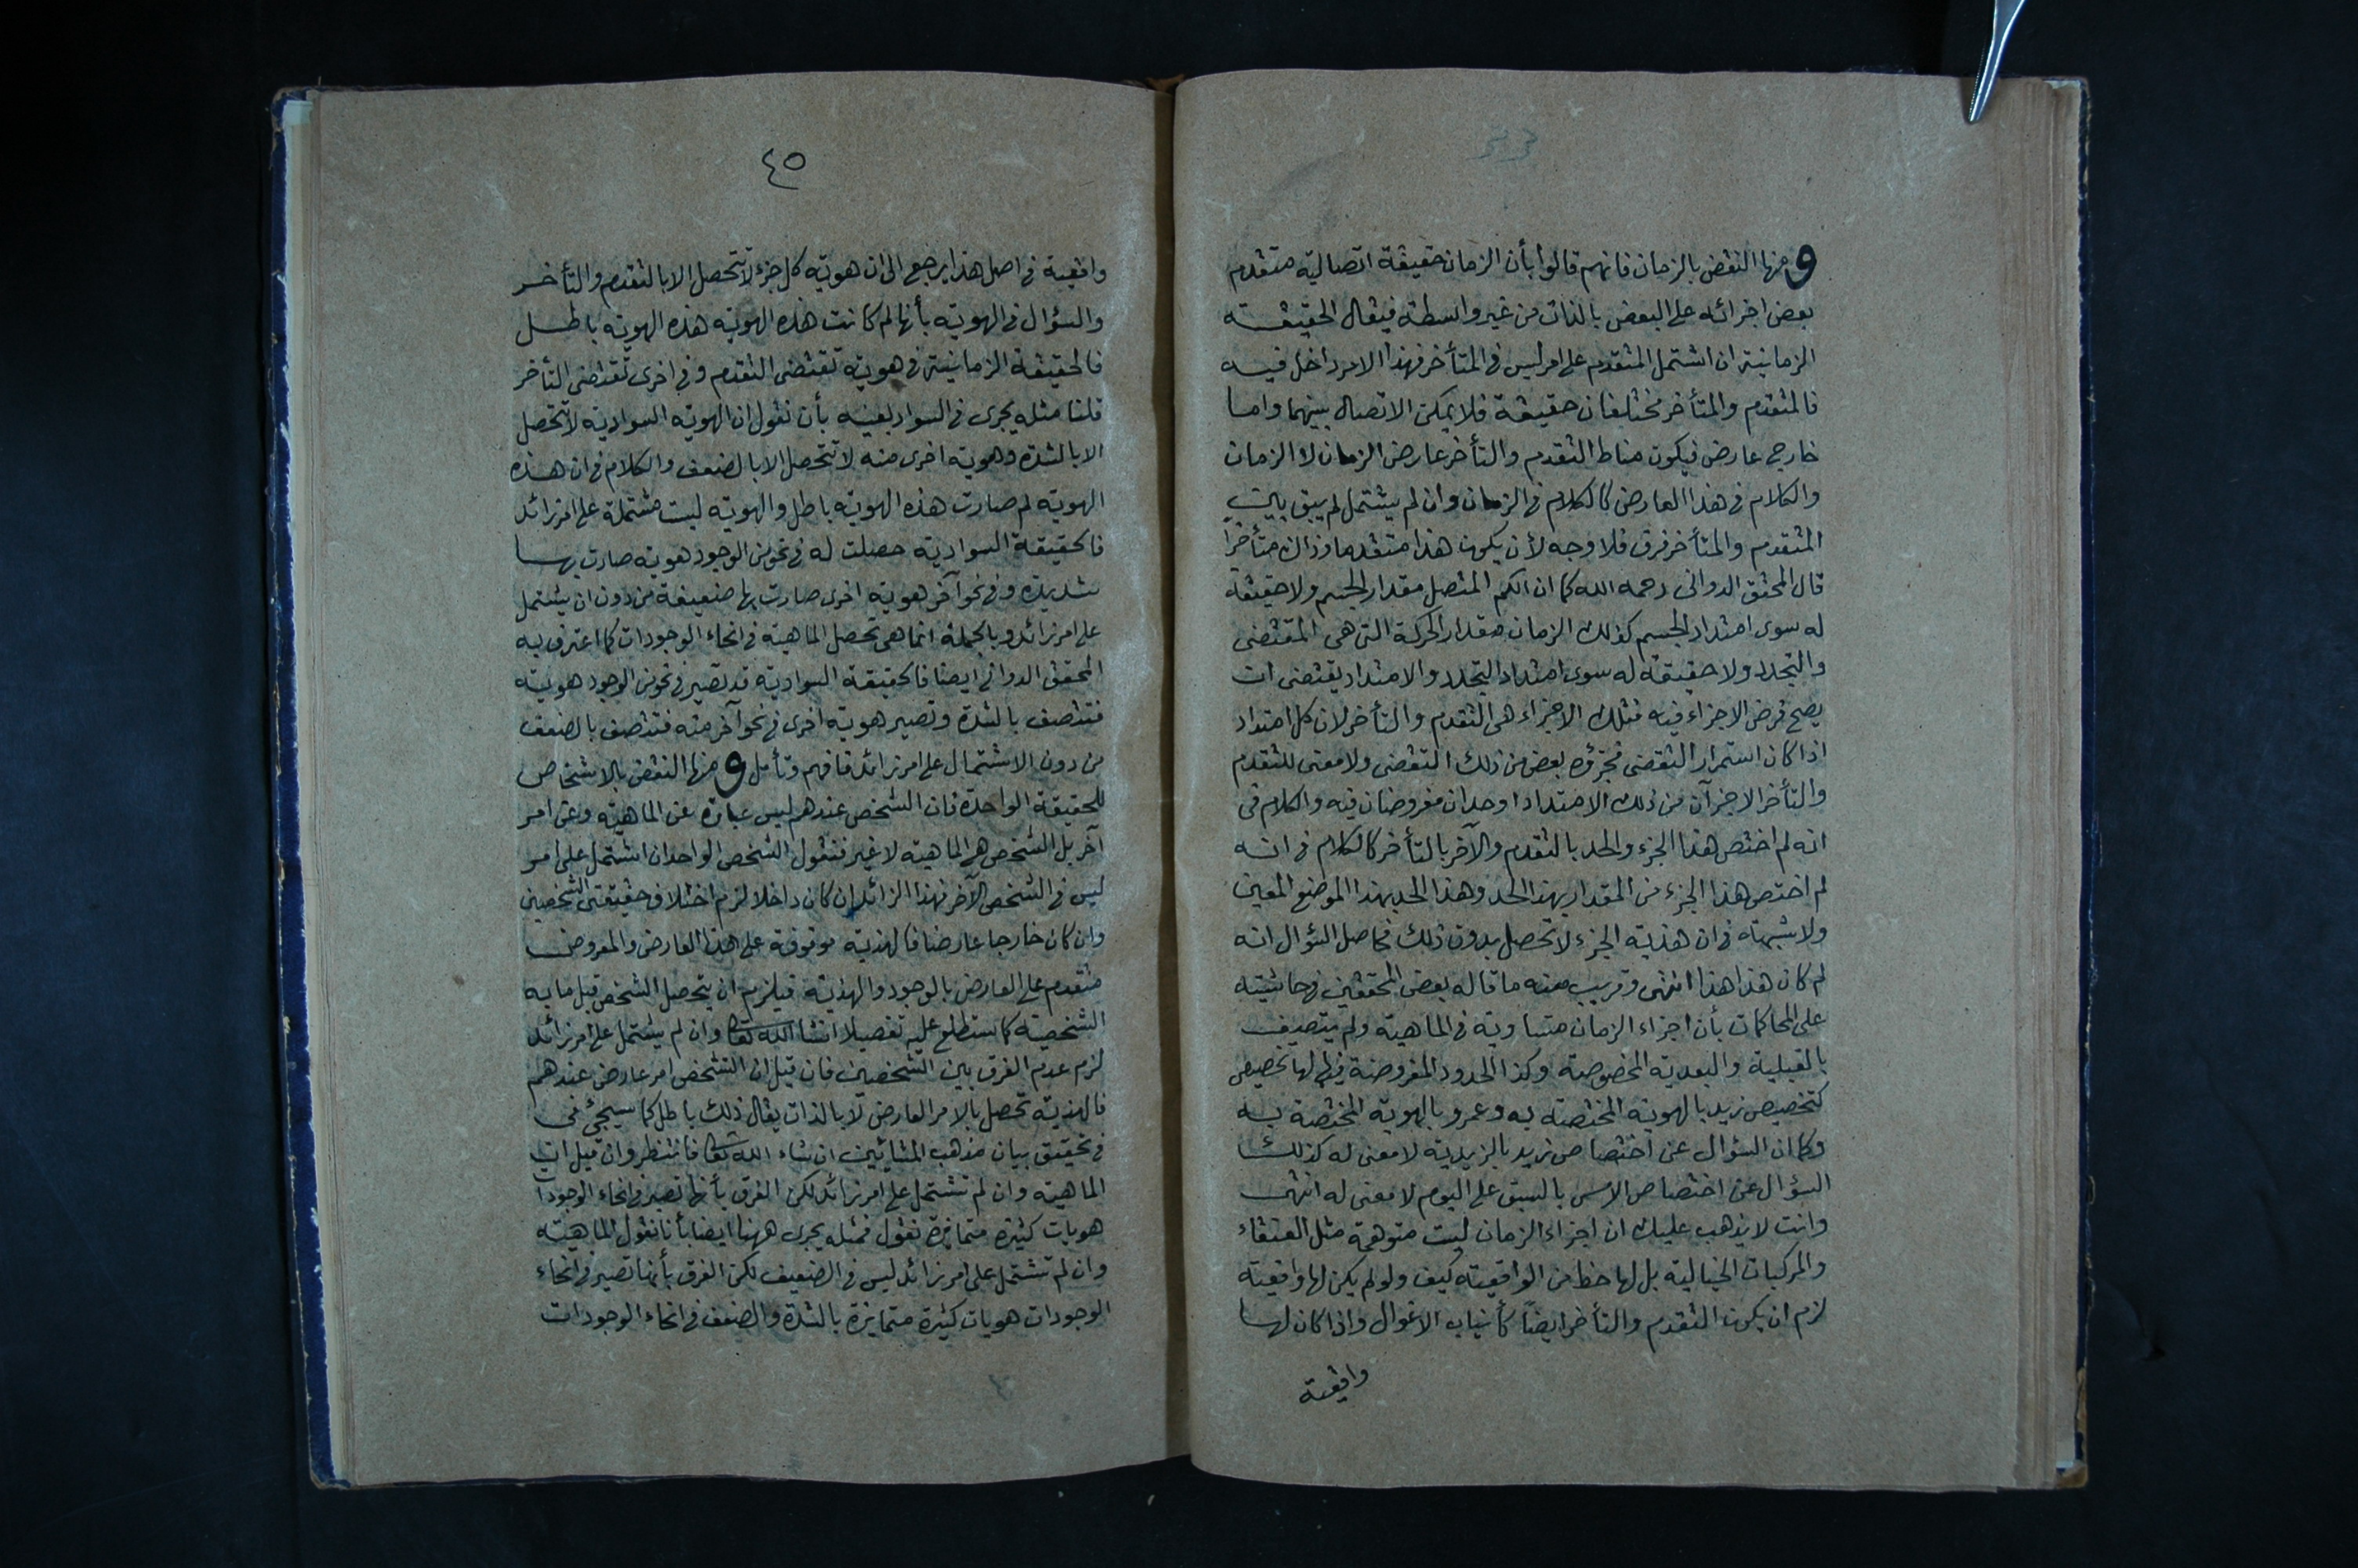 ومنها النقض بالزمان فانهم قالوا بأن الزمان حقيقة اتصالية متقدم
بعض اجزائه على البعض بالذات من غير واسطة فيقال الحقيقة
الزمانية ان اشتمل المتقدم على امر ليس في المتأخر فهذا الامر داخل فيه
فالمتقدم والمتأخر مختلفان حقيقة فلا يمكن الاتصال بينهما واما
خارج عارض فيكون مناط التقدم والتأخر عارض الزمان لا الزمان
والكلام في هذا العارض كالكلام في الزمان وان لم يشتمل لم يبق بين
المتقدم والمتأخر فرق فلا وجه لأن يكون هذا متقدما وذاك متأخرا
قال المحقق الدواني رحمه الله كما ان الكم المتصل مقدار الجسم ولا حقيقة
له سوى امتداد الجسم كذلك الزمان مقدار الحركة التي هي المقتضى
والتجدد ولا حقيقة له سوى امتداد التجدد والامتداد يقتضى ان
يصح فرض الاجزاء فيه فتلك الاجزاء هي التقدم والتأخر لان كل امتداد
اذا كان استمرار التقضى فجزؤه بعض من ذلك التقضى ولا معنى للتقدم
والتأخر الا جزآن من ذلك الامتداد او حدان مفروضان فيه والكلام في
انه لم اختص هذا الجزء والحد بالتقدم والآخر بالتأخر كالكلام في انه
لم اختص هذا الجزء من المقدار بهذا الحد وهذا الحد بهذا الموضع المعين
ولا شبهة في ان هذية الجزء لا تحصل بدون ذلك فحاصل السؤال انه
لم كان هذا هذا انتهى وقريب منه ما قاله بعض المحققين في حاشيته
على المحاكمات بأن اجزاء الزمان متساوية في الماهية ولم يتصف
بالقبلية والبعدية المخصوصة وكذا الحدود المفروضة فيها لها تخصيص
كتخصيص زيد بالهوية المختصة به وعمرو بالهوية المختصة به
وكما ان السؤال عن اختصاص زيد بالزيدية لا معنى له كذلك
السؤال عن اختصاص الامس بالسبق على اليوم لا معنى له انتهى
وانت لا يذهب عليك ان اجزاء الزمان ليست متوهمة مثل العنقاء
والمركبات الخيالية بل لها حظ من الواقعية كيف ولو لم يكن لها واقعية
لزم ان يكون التقدم والتأخر ايضاً كأنياب الاغوال واذا كان لها
واقعية
٤٥
واقعية في اصل هذا يرجع الى ان هوية كل جزء لا تتحصل الا بالتقدم والتأخر
والسؤال في الهوية بأنها لم كانت هذه الهوية هذه الهوية باطل
فالحقيقة الزمانية في هوية تقتضى التقدم وفي اخرى تقتضى التأخر
قلنا مثله يجرى في السواد بعينه بأن نقول ان الهوية السوادية لا تتحصل
الا بالشدة وهوية اخرى منه لا تتحصل الا بالضعف والكلام في ان هذه
الهوية لم صارت هذه الهوية باطل والهوية ليست مشتملة على امر زائد
فالحقيقة السوادية حصلت له في نحو من الوجود هوية صارت بها
شديدة وفي نحو آخر هوية اخرى صارت بها ضعيفة من دون ان يشتمل
على امر زائد وبالجملة انما هي تحصل الماهية في انحاء الوجودات كما اعترف به
المحقق الدواني ايضا فالحقيقة السوادية قد تصير في نحو من الوجود هوية
فتتصف بالشدة وتصير هوية اخرى في نحو آخر منه فتتصف بالضعف
من دون الاشتمال على امر زائد فافهم وتأمل ومنها النقض بالاشخاص
للحقيقة الواحدة فان الشخص عندهم ليس عبارة عن الماهية وعن امر
آخر بل الشخص هي الماهية لا غير فنقول الشخص الواحد ان اشتمل على امر
ليس في الشخص الآخر فهذا الزائد ان كان داخلا لزم اختلاف حقيقتى الشخصين
وان كان خارجا عارضا فالهذية موقوفة على هذا العارض والمعروض
متقدم على العارض بالوجود والهذية فيلزم ان يتحصل الشخص قبل ما به
الشخصية كما ستطلع عليه تفصيلا انشا الله تعا وان لم يشتمل على امر زائد
لزم عدم الفرق بين الشخصين فان قيل ان التشخص امر عارض عندهم
فالهذية تحصل بالامر العارض لا بالذات يقال ذلك باطل كما سيجئ في
في تحقيق بيان مذهب المشائين ان شاء الله تعا فانتظر وان قيل ان
الماهية وان لم تشتمل على امر زائد لكن الفرق بأنها تصير في انحاء الوجودات
هويات كثيرة متمايزة نقول فمثله يجرى ههنا ايضا بأنا نقول الماهية
وان لم تشتمل على امر زائد ليس في الضعيف لكن الفرق بأنها تصير في انحاء
الوجودات هويات كثيرة متمايزة بالشدة والضعف في انحاء الوجودات